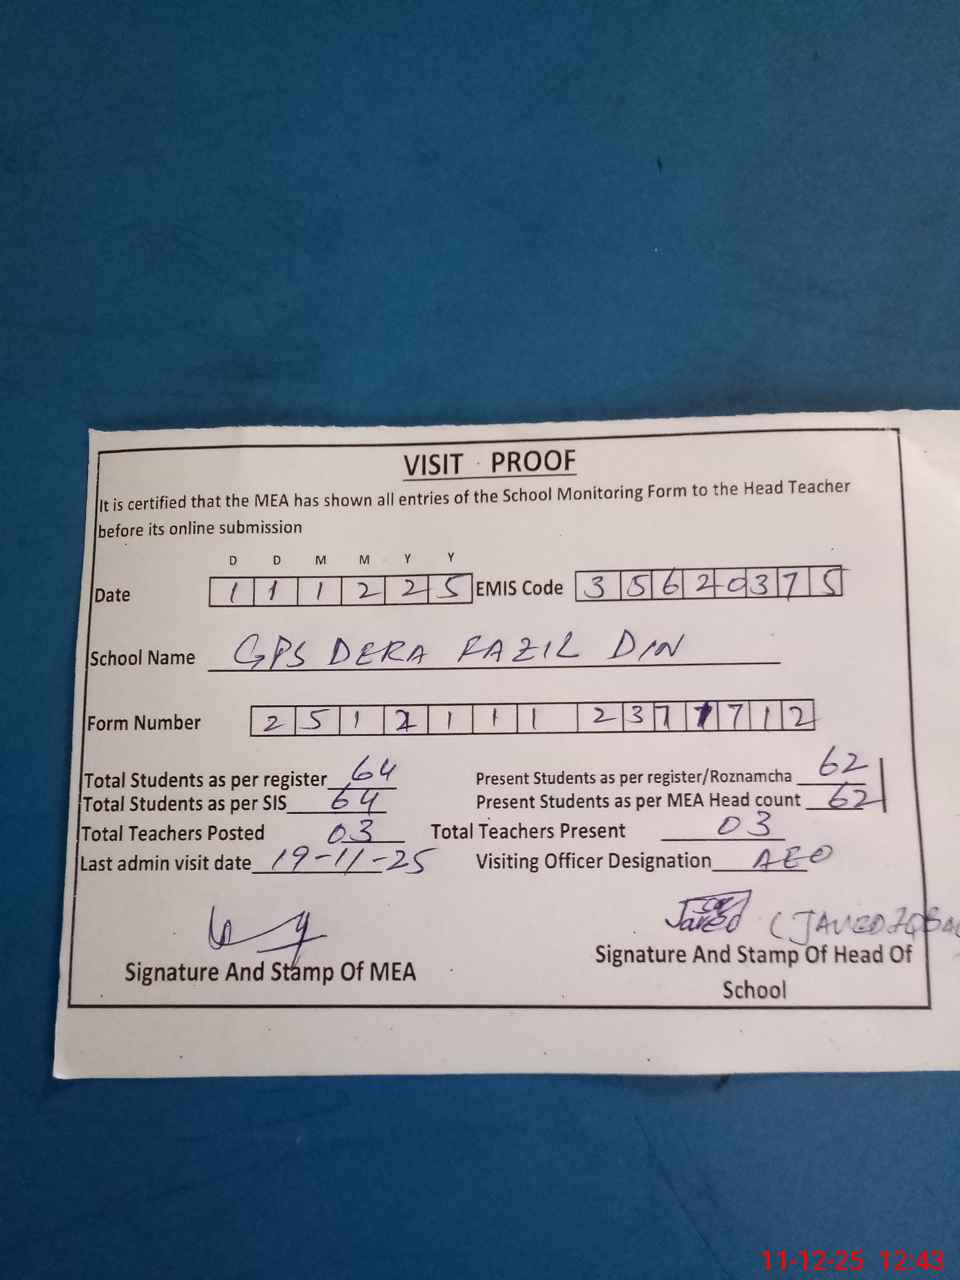 VISIT PROOF
It is certified that the MEA has shown all entries of the School Monitoring Form to the Head Teacher
before its online submission
D D M M Y Y
Date 1 1 1 2 2 5 EMIS Code 3 5 6 2 0 3 7 5
School Name GPS DERA FAZIL DIN
Form Number 2 5 1 2 1 1 1 2 3 7 1 7 1 2
Total Students as per register 64 Present Students as per register/Roznamcha 62
Total Students as per SIS 64 Present Students as per MEA Head count 62
Total Teachers Posted 03 Total Teachers Present 03
Last admin visit date 19-11-25 Visiting Officer Designation AEO
Javed (JAVED IQBAL
Signature And Stamp Of MEA Signature And Stamp Of Head Of
School
11-12-25 12:43